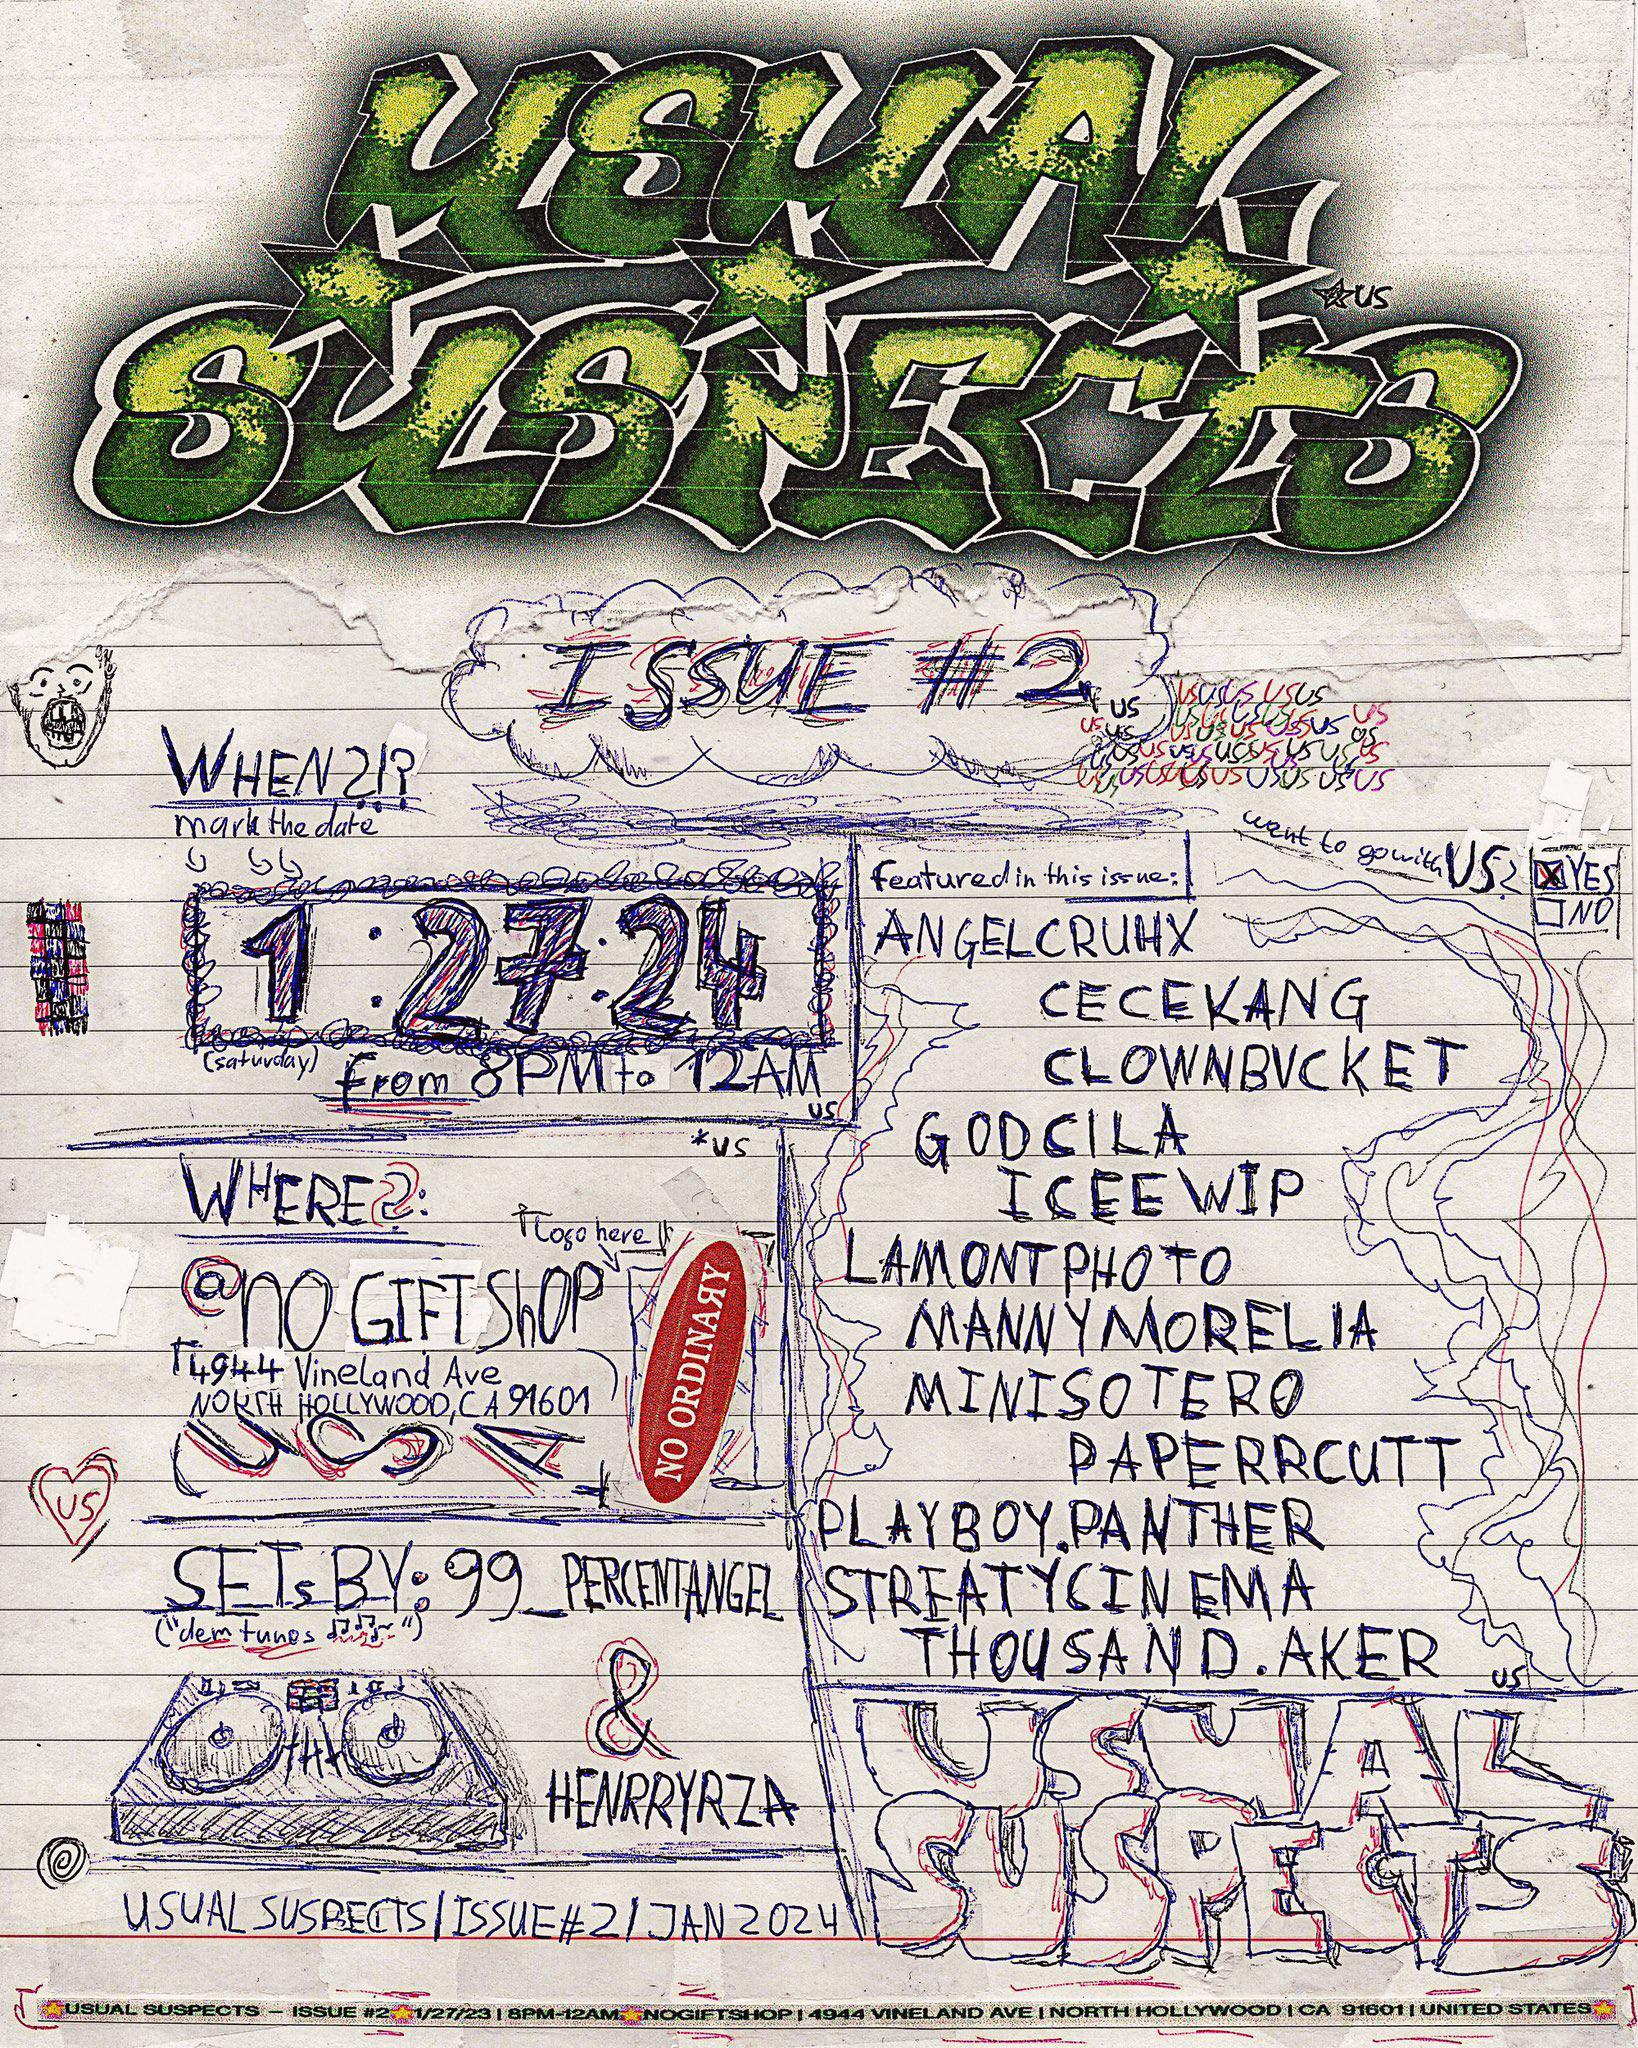 USUAL
SUSPECTS
US
ISSUE #2
US
US US US US US
WHEN?!?
mark the date
1:27:24
(saturday)
from 8PM to 12AM
US
want to go with US?
YES
NO
featured in this issue:
ANGELCRUHX
CECEKANG
CLOWNBVCKET
GODCILA
ICEEWIP
LAMONTPHOTO
MANNYMORELIA
MINISOTERO
PAPERRCUTT
PLAYBOY.PANTHER
STREATYCINEMA
THOUSAND.AKER
US
*US
WHERE?:
Logo here
@NO GIFTSHOP
4944 Vineland Ave
NORTH HOLLYWOOD, CA 91601
USA
NO ORDINARY
US
SETs BY: 99_PERCENTANGEL
("dem tunes")
&
HENRRYRZA
USUAL SUSPECTS
USUAL SUSPECTS/ISSUE#2/JAN 2024
USUAL SUSPECTS – ISSUE #2 1/27/23 | 8PM-12AM NOGIFTSHOP | 4944 VINELAND AVE | NORTH HOLLYWOOD | CA 91601 | UNITED STATES